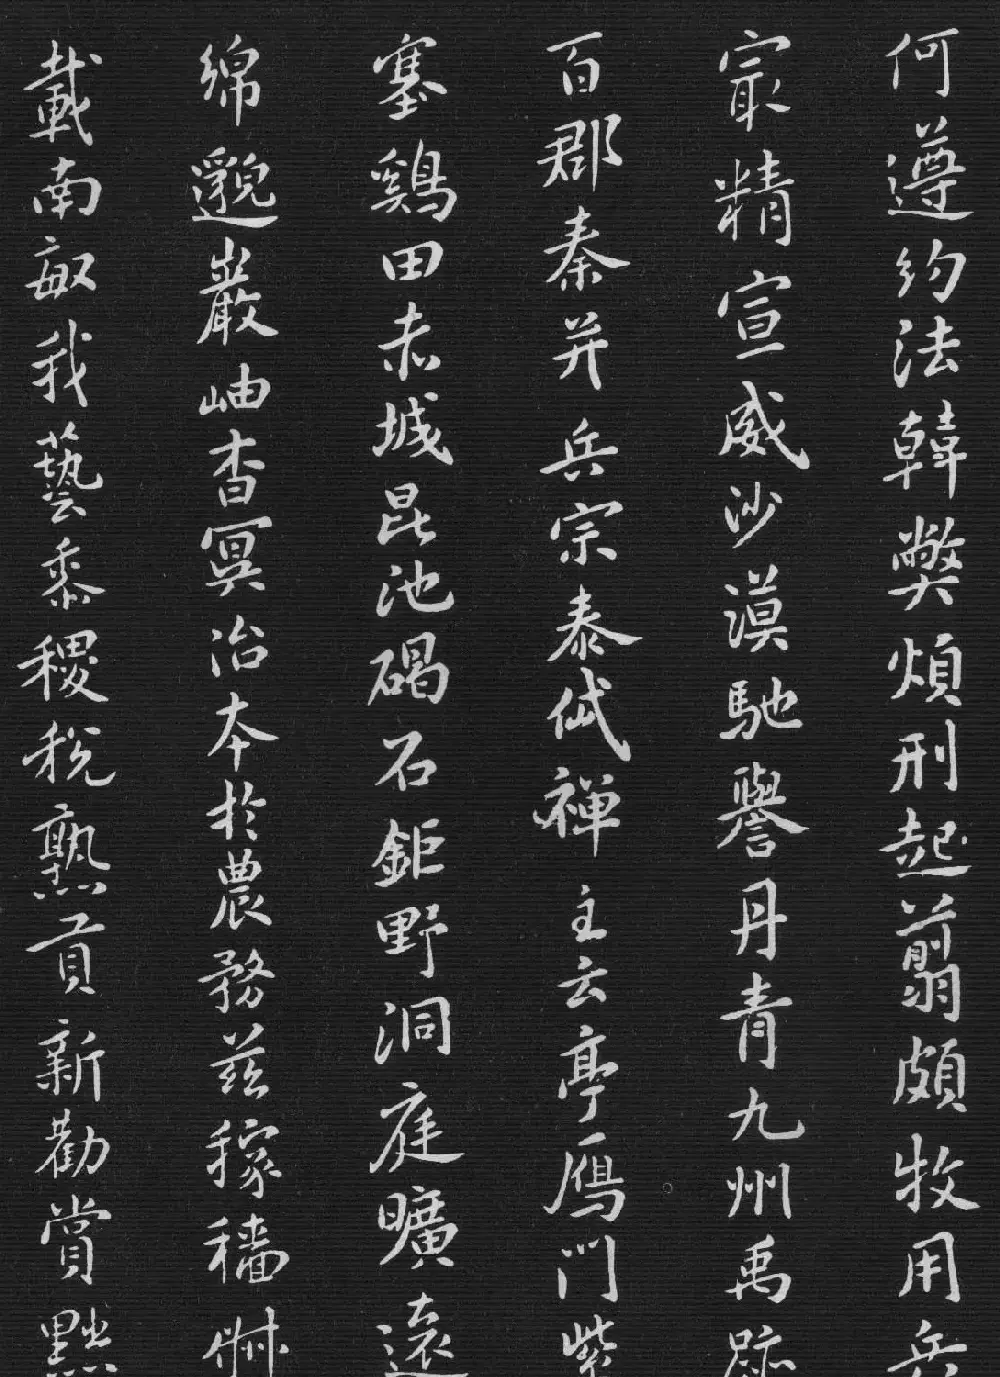 何遵約法韓弊煩刑起翦頗牧用兵
最精宣威沙漠馳譽丹青九州禹跡
百郡秦并岳宗泰岱禪主云亭鴈門紫
塞鷄田赤城昆池碣石鉅野洞庭曠遠
綿邈巖岫杳冥治本於農務茲稼穡俶
載南畝我藝黍稷稅熟貢新勸賞黜